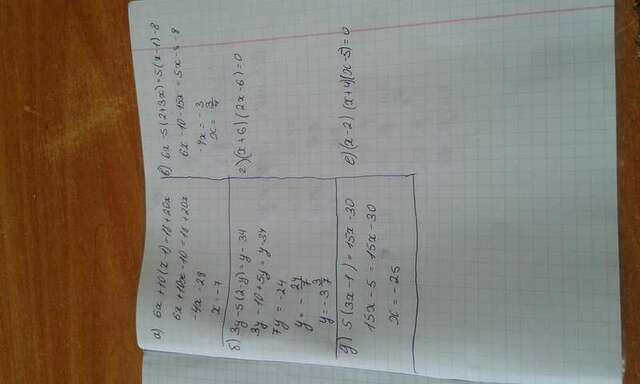 а) 6x + 10(x-1) = 18 + 20x
6x + 10x - 10 = 18 + 20x
-4x = 28
x = -7
б) 3y - 5(2-y) = y - 34
3y - 10 + 5y = y - 34
7y = -24
y = - 24/7
y = -3 3/7
д) 5(3x-1) = 15x - 30
15x - 5 = 15x - 30
x = -25
в) 6x - 5(2+3x) = 5(x-1) - 8
6x - 10 - 15x = 5x - 5 - 8
-4x = -3
x = 3/4
г) (x+6)(2x-6) = 0
е) (x-2)(x+4)(x-5) = 0